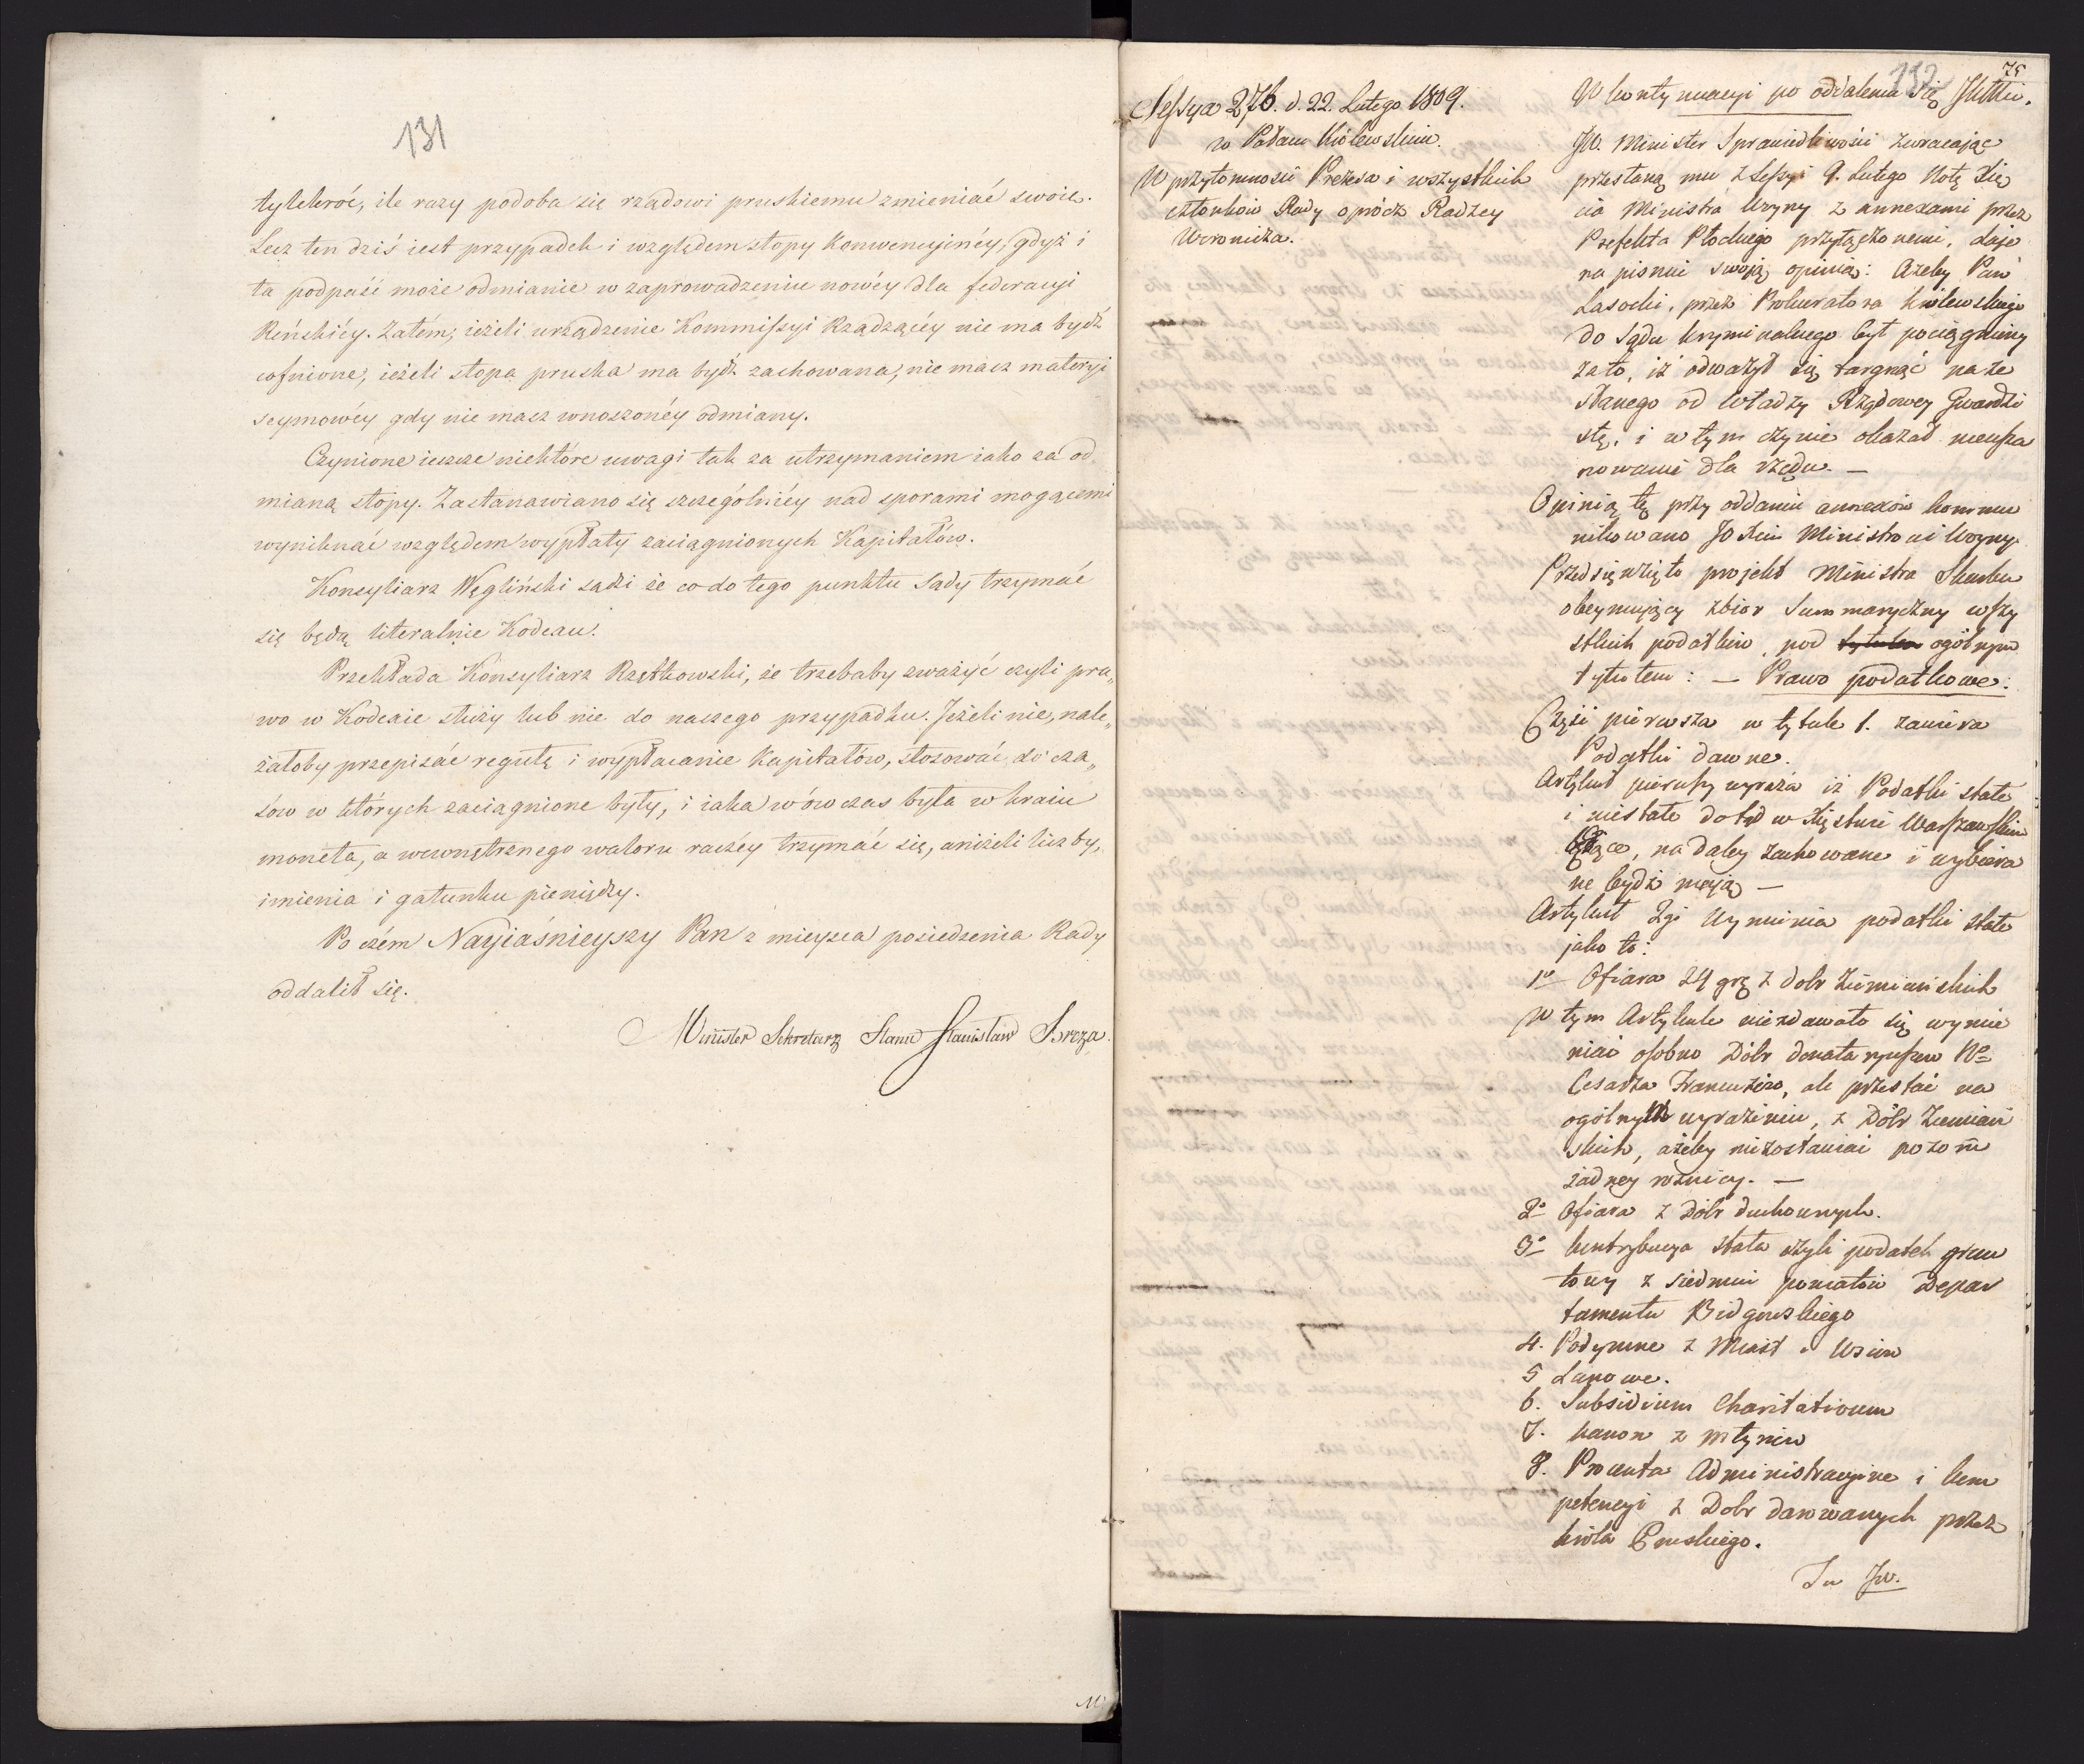 131
tylekroć, ile razy podoba się rządowi pruskiemu zmieniać swoie.
Lecz ten dziś iest przypadek i względem stopy Konwencyinéy, gdyż i
ta podpaść może odmianie w zaprowadzeniu nowéy dla federacyi
Reńskiéy. Zatém, ieżeli urządzenie Kommissyi Rządzącéy nie ma bydź
cofnione, ieżeli stopa pruska ma bydź zachowana, nie masz materyi
seymowéy gdy nie masz wnoszonéy odmiany.
Czynione ieszcze niektóre uwagi tak za utrzymaniem iako za od„
mianą stopy. Zastanawiano się szczególniéy nad sporami mogącemi
wyniknąć względem wypłaty zaciągnionych Kapitałów.
Konsyliarz Węgliński sądzi że co do tego punktu Sądy trzymać
się będą literalnie Kodexu.
Przekłada Konsyliarz Rzętkowski, że trzebaby zważyć czyli pra„
wo w Kodexie służy lub nie do naszego przypadku. Jeżeli nie, nale„
żałoby przepisać regułę i wypłacanie Kapitałów, stosować do cza„
sów w których zaciągnione były, i iaka wówczas była w kraiu
moneta, a wewnętrznego waloru raczéy trzymać się, aniżeli liczby,
imienia i gatunku pieniędzy.
Po czém Nayiaśnieyszy Pan z mieysca posiedzenia Rady
oddalił się.
Minister Sekretarz Stanu Stanisław Breza.
132
75
Sessya 276. d. 22. Lutego 1809.
w Pałacu Królewskim.
W przytomności Prezesa i wszystkich
członków Rady oprócz Radzcy
Woronicza.
W kontynuacyi po oddaleniu się JKMci.
JW. Minister Sprawiedliwości zwracając
przesłaną mu z Sessyi 9. Lutego Notę Xię
cia Ministra Woyny z annexami przez
Prefekta Płockiego przyłączonemi, daje
na pismie swoją opinią: Ażeby Pan
Lasocki, przez Prokuratora Królewskiego
do Sądu kryminalnego był pociągniony
za to, iż odważył się targnąć na ze
słanego od Władzy Rządowey Gwardzi
stę, i w tym czynie okazał nieusza
nowanie dla rządu. —
Opinią tę przy oddaniu annexów kommu
nikowano JO Xciu Ministrowi Woyny.
Przedsięwzięto projekt Ministra Skarbu
obeymujący zbior Summaryczny wszy
stkich podatków, pod tytułem ogólnym
tytułem: — Prawo podatkowe.
Część pierwsza w tytule 1. zawiera
Podatki dawne.
Artykuł pierwszy wyraża iż Podatki stałe
i niestałe dotąd w Xięstwie Warszawskim
będące, na daley zachowane i wybiera
ne bydź mają —
Artykuł 2gi Wymienia podatki stałe
jako to:
1o Ofiara 24 grę z dobr Ziemianskich
W tym Artykule niezdawało się wymie
niać osobno Dóbr donataryuszow No
Cesarza Francuzów, ale przestać na
ogólnym wyrażeniu, z Dóbr Ziemiań
skich, ażeby niezostawiać pozoru
żadney rożnicy. —
2o Ofiara z Dóbr duchownych.
3o Kontrybucya stała czyli podatek grun
towy z siedmiu powiatów Depar
tamentu Bidgowskiego
4. Podymne z Miast i Wsiow
5 Łanowe.
6. Subsidium Charitativum
7. Kanon z młynów
8. Procenta Administracyine i kom
petencyi z Dobr darowanych przez
króla Pruskiego.
Tu JW.